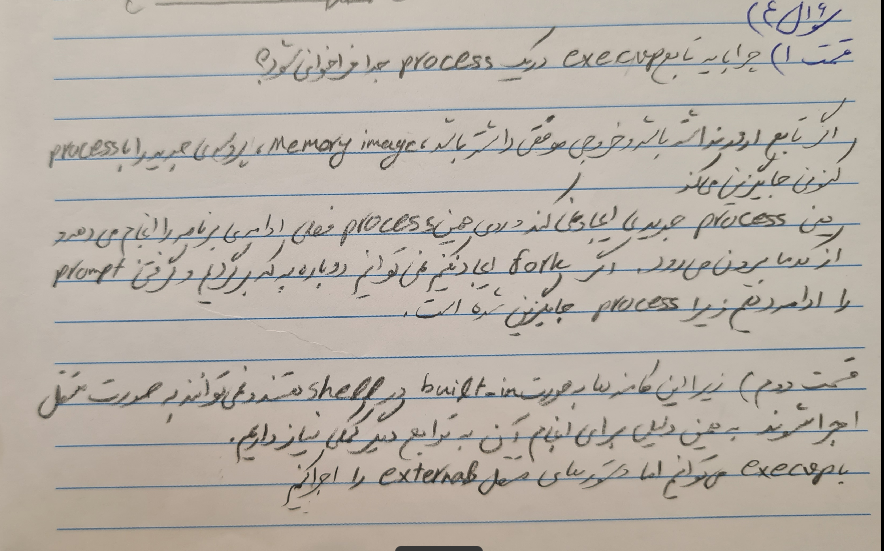 سوال ۴)
قسمت ۱) چرا باید تابع execvp در یک process جدا فراخوانی شود؟
اگر تابع ارور نداشته باشد و خروجی موفقی داشته باشد، Memory image، پروسه‌ی جدید را با process
کنونی جایگزین می‌کند
یعنی process جدیدی ایجاد نمی‌کند و روی همین process فعلی ادامه‌ی برنامه را انجام می‌دهد و
از کد ما بیرون می‌رود. اگر fork ایجاد نکنیم نمی‌توانیم دوباره به کد برگردیم و گرفتن prompt
را ادامه دهیم زیرا process جایگزین شده است.
قسمت دوم) زیرا این کامند ها به صورت built-in در shell هستند و نمی‌توانند به صورت مستقل
اجرا شوند به همین دلیل برای انجام آن به توابع دیگر کمکی نیاز داریم.
با execvp می‌توانیم اما دستورهای مستقل external را اجرا کنیم